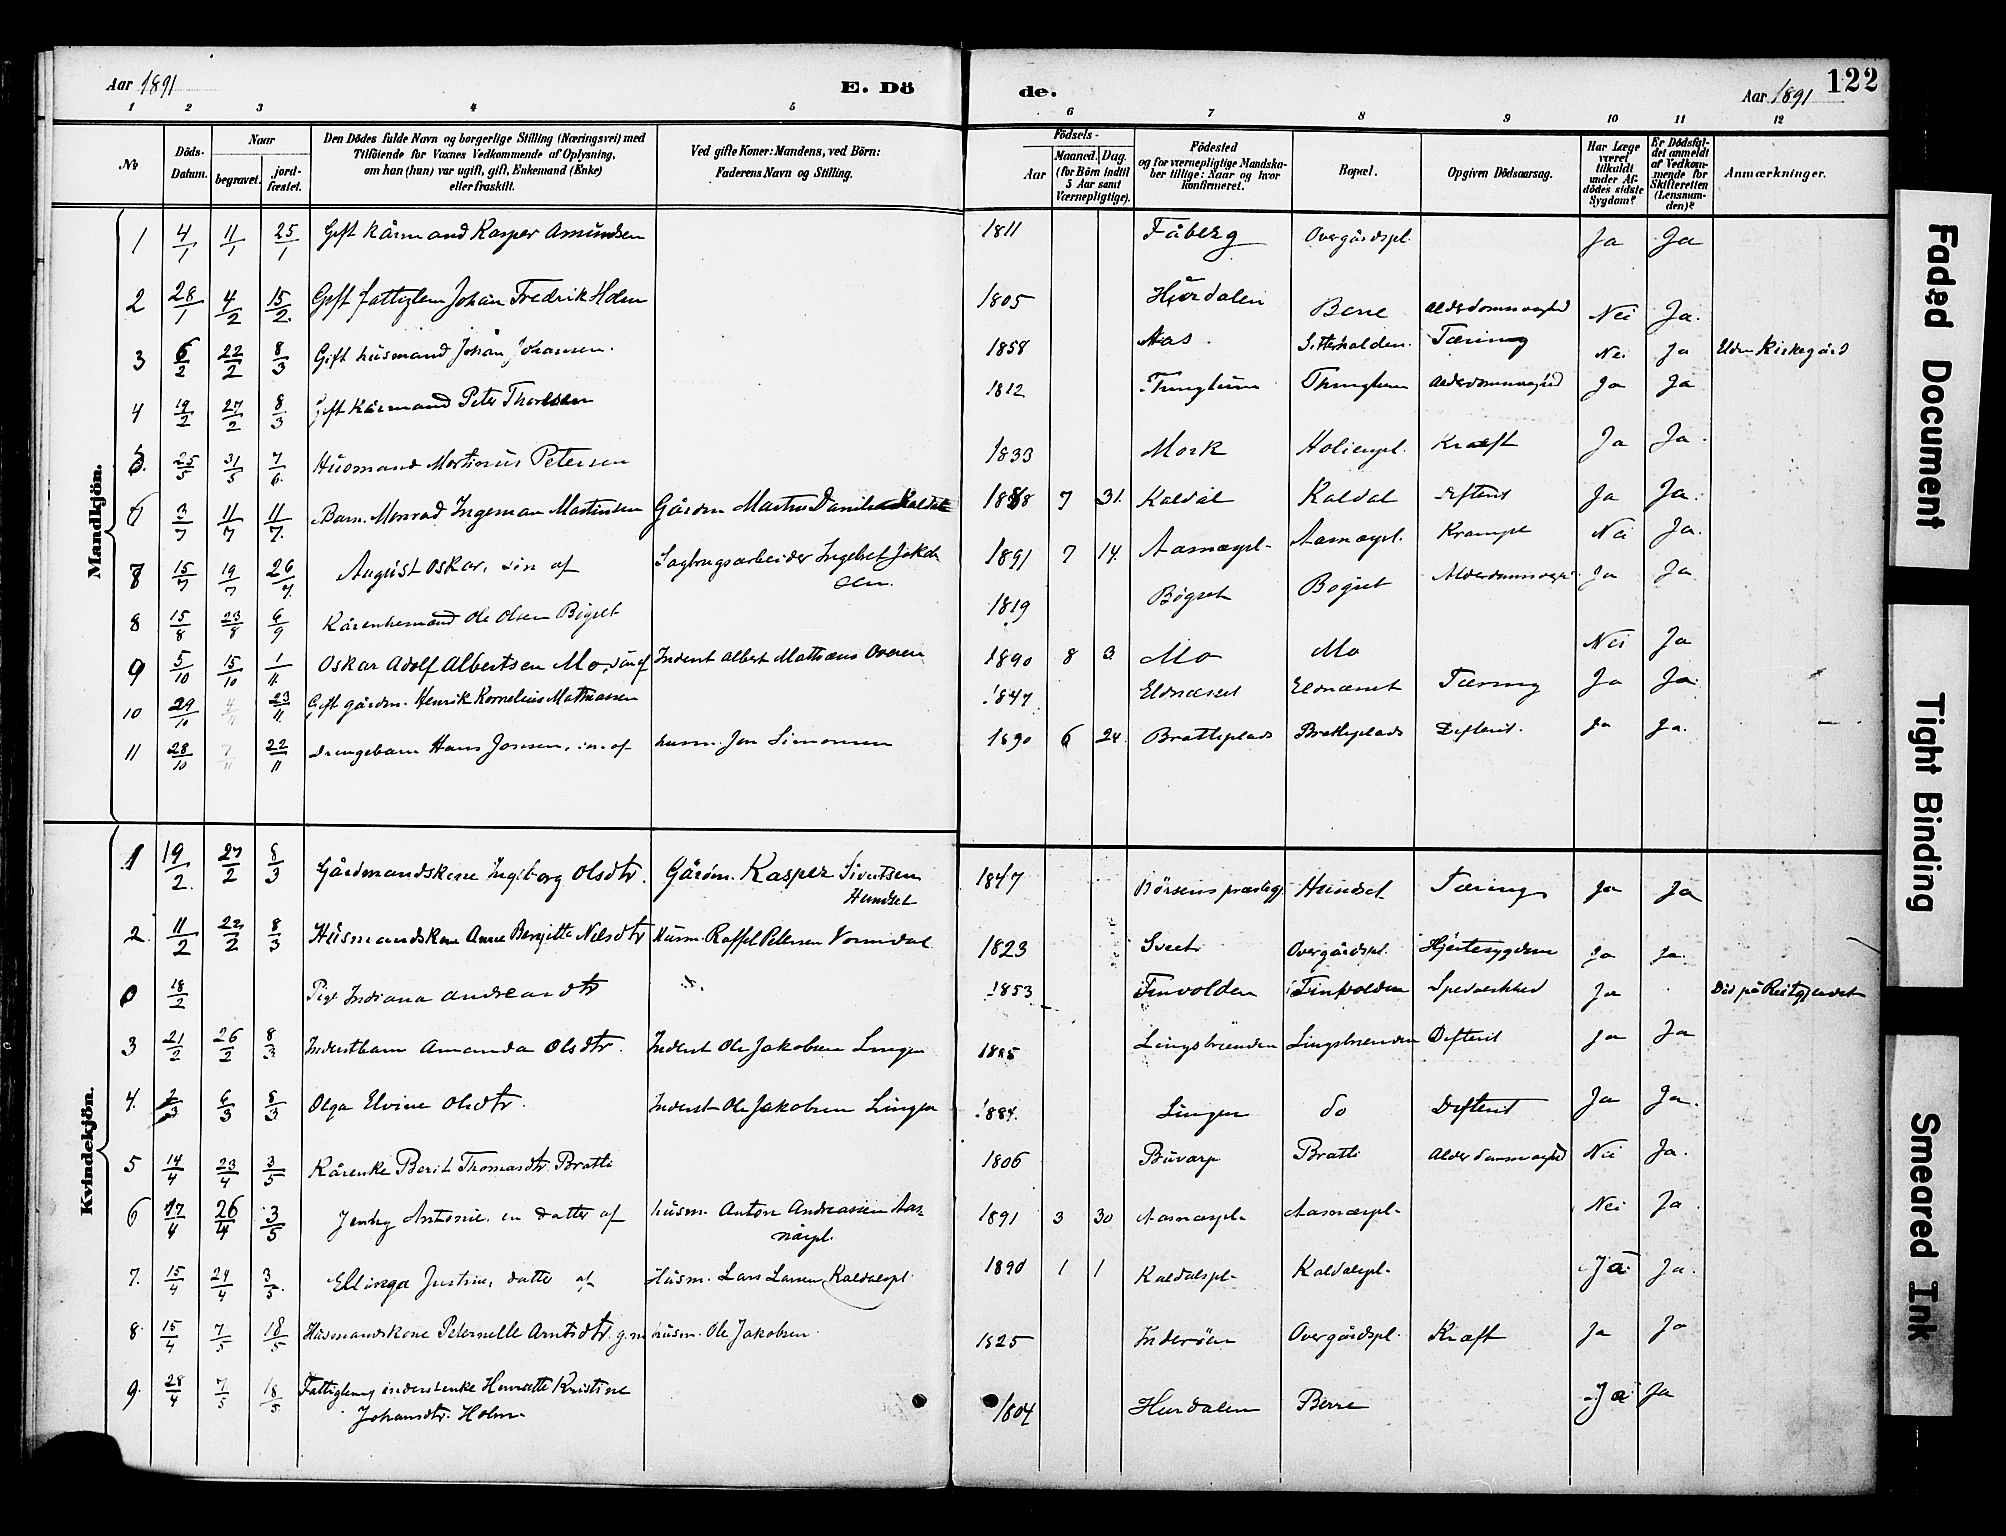 Aar 1891
E. Dö
de.
Aar 1891
122
1 2 3 4 5
6 7 8 9 10 11 12
No
Döds-Datum.
Naar
begravet.
jord-fæstet.
Den Dödes fulde Navn og borgerlige Stilling (Næringsvei) med
Tilföiende for Voxnes Vedkommende af Oplysning,
om han (hun) var ugift, gift, Enkemand (Enke)
eller fraskilt.
Ved gifte Koner: Mandens, ved Börn:
Faderens Navn og Stilling.
Födsels-
Aar
Maaned. Dag.
(for Börn indtil
5 Aar samt
Værnepligtige).
Födested
og for værnepligtige Mandska-
ber tillige: Naar og hvor
konfirmeret.
Bopæl.
Opgiven Dödsaarsag.
Har Læge
været
tilkaldt
under Af-
dödes sidste
Sygdom?
Er Dödsfal-
det anmeldt
af Vedkom-
mende for
Skifteretten
(Lensman-
den)?
Anmærkninger.
Mandkjön.
1 4/1 11/1 25/1 Gift Kårmand Kasper Amundsen 1811 Fåberg Overgårdspl. Ja Ja
2 28/1 4/2 15/2 Gift fattiglem Johan Fredrik Holm 1805 Hurdalen Berre Alderdomsvaghed Nei Ja.
3 6/2 22/2 8/3 Gift husmand Johan Johansen. 1858 Aas. Sitterhalden. Tæring Nei Ja Elden Kirkegård
4 19/2 27/2 8/3 Gift Kårmand Peter Thoresen 1812 Thinghem Thinghem Alderdomsvaghed Ja Ja
5. 25/5 31/5 7/6 Husmand Martinus Petersen 1833 Mork Holienpl. Kræft Ja Ja.
6 3/7 11/7 11/7 Barn. Monrad Ingeman Martinsen Gårdm. Martin Danielsen Kaldal 1888 7 31. Kaldal Kaldal Difterit Ja Ja.
7 15/7 19/7 26/7 August Oskar, sön af Sagbrugsarbeider Ingebret Jakob
Olsen. 1891 7 14. Aasnæspl. Aasnæspl. Krampe Nei Ja.
8 15/8 23/8 6/9 Kårenkemand Ole Olsen Bögset 1819 Bögset Bogset Alderdomsvaghed Ja Ja
9 5/10 15/10 1/11 Oskar Adolf Albertsen Mo, sön af Inderst Albert Mathæus Overen 1890 8 3 Mo Mo Nei Ja
10 29/10 4/11 23/11 Gift gårdm. Henrik Kornelius Mathiassen 1847 Eldnæset Eldnæset Tæring Ja Ja.
11 28/10 7/11 22/11 Drengebarn Hans Jonsen, sön af husm. Jon Simonsen 1890 6 24 Bratteplads Bratteplads Difterit. Ja Ja.
Kvindekjön.
1 19/2 27/2 8/3 Gårdmandskone Ingeborg Olsdtr. Gårdm. Kasper Sivertsen
Hundset 1847 Börsens præstegj. Hundset Tæring Ja Ja
2. 11/2 22/2 8/3 Husmandskone Anne Bergitte Nilsdtr Husm. Raffel Petersen Vormdal 1823 Overgårdspl. Hjertesygdom Ja Ja.
0 18/2 Pige Indiana Andreasdtr 1853 Finvolden Finvolden Spedalskhed Ja Död på Reitgjerdet
3 21/2 26/2 8/3 Inderstbarn Amanda Olsdtr. Inderst Ole Jakobsen Lingen 1885 Lingsbrænden Lingsbrænden Difterit Ja Ja
4. 2/3 6/3 8/3 Olga Elvine Olsdtr. Inderst Ole Jakobsen Lingen 1884. Lingen do Difterit Ja Ja.
5 14/4 23/4 3/5 Kårenke Berit Thomasdtr. Bratli 1806 Buvarp Bratli Alderdomsvaghed Nei Ja.
6 17/4 26/4 3/5 Jenny Antonie, en datter af husm. Anton Andreassen Aas-
næspl. 1891 3 30 Aasnæspl. Aasnæspl. Nei Ja.
7. 15/4 24/4 3/5 Ellinga Justine, datter af Husm. Lars Larsen Kaldalspl. 1890 1 1 Kaldalspl. Kaldalspl. Ja Ja.
8 15/4 7/5 18/5 Husmandskone Peternelle Arntsdtr g. m. husm. Ole Jakobsen. 1825 Inderöen Overgårdspl. Kræft Ja Ja
9. 28/4 7/5 18/5 Fattiglem, inderstenke Henriette Kristine
Johansdtr. Holm. 1804 Hurdalen Berre Ja Ja
Faded Document
Tight Binding
Smeared Ink